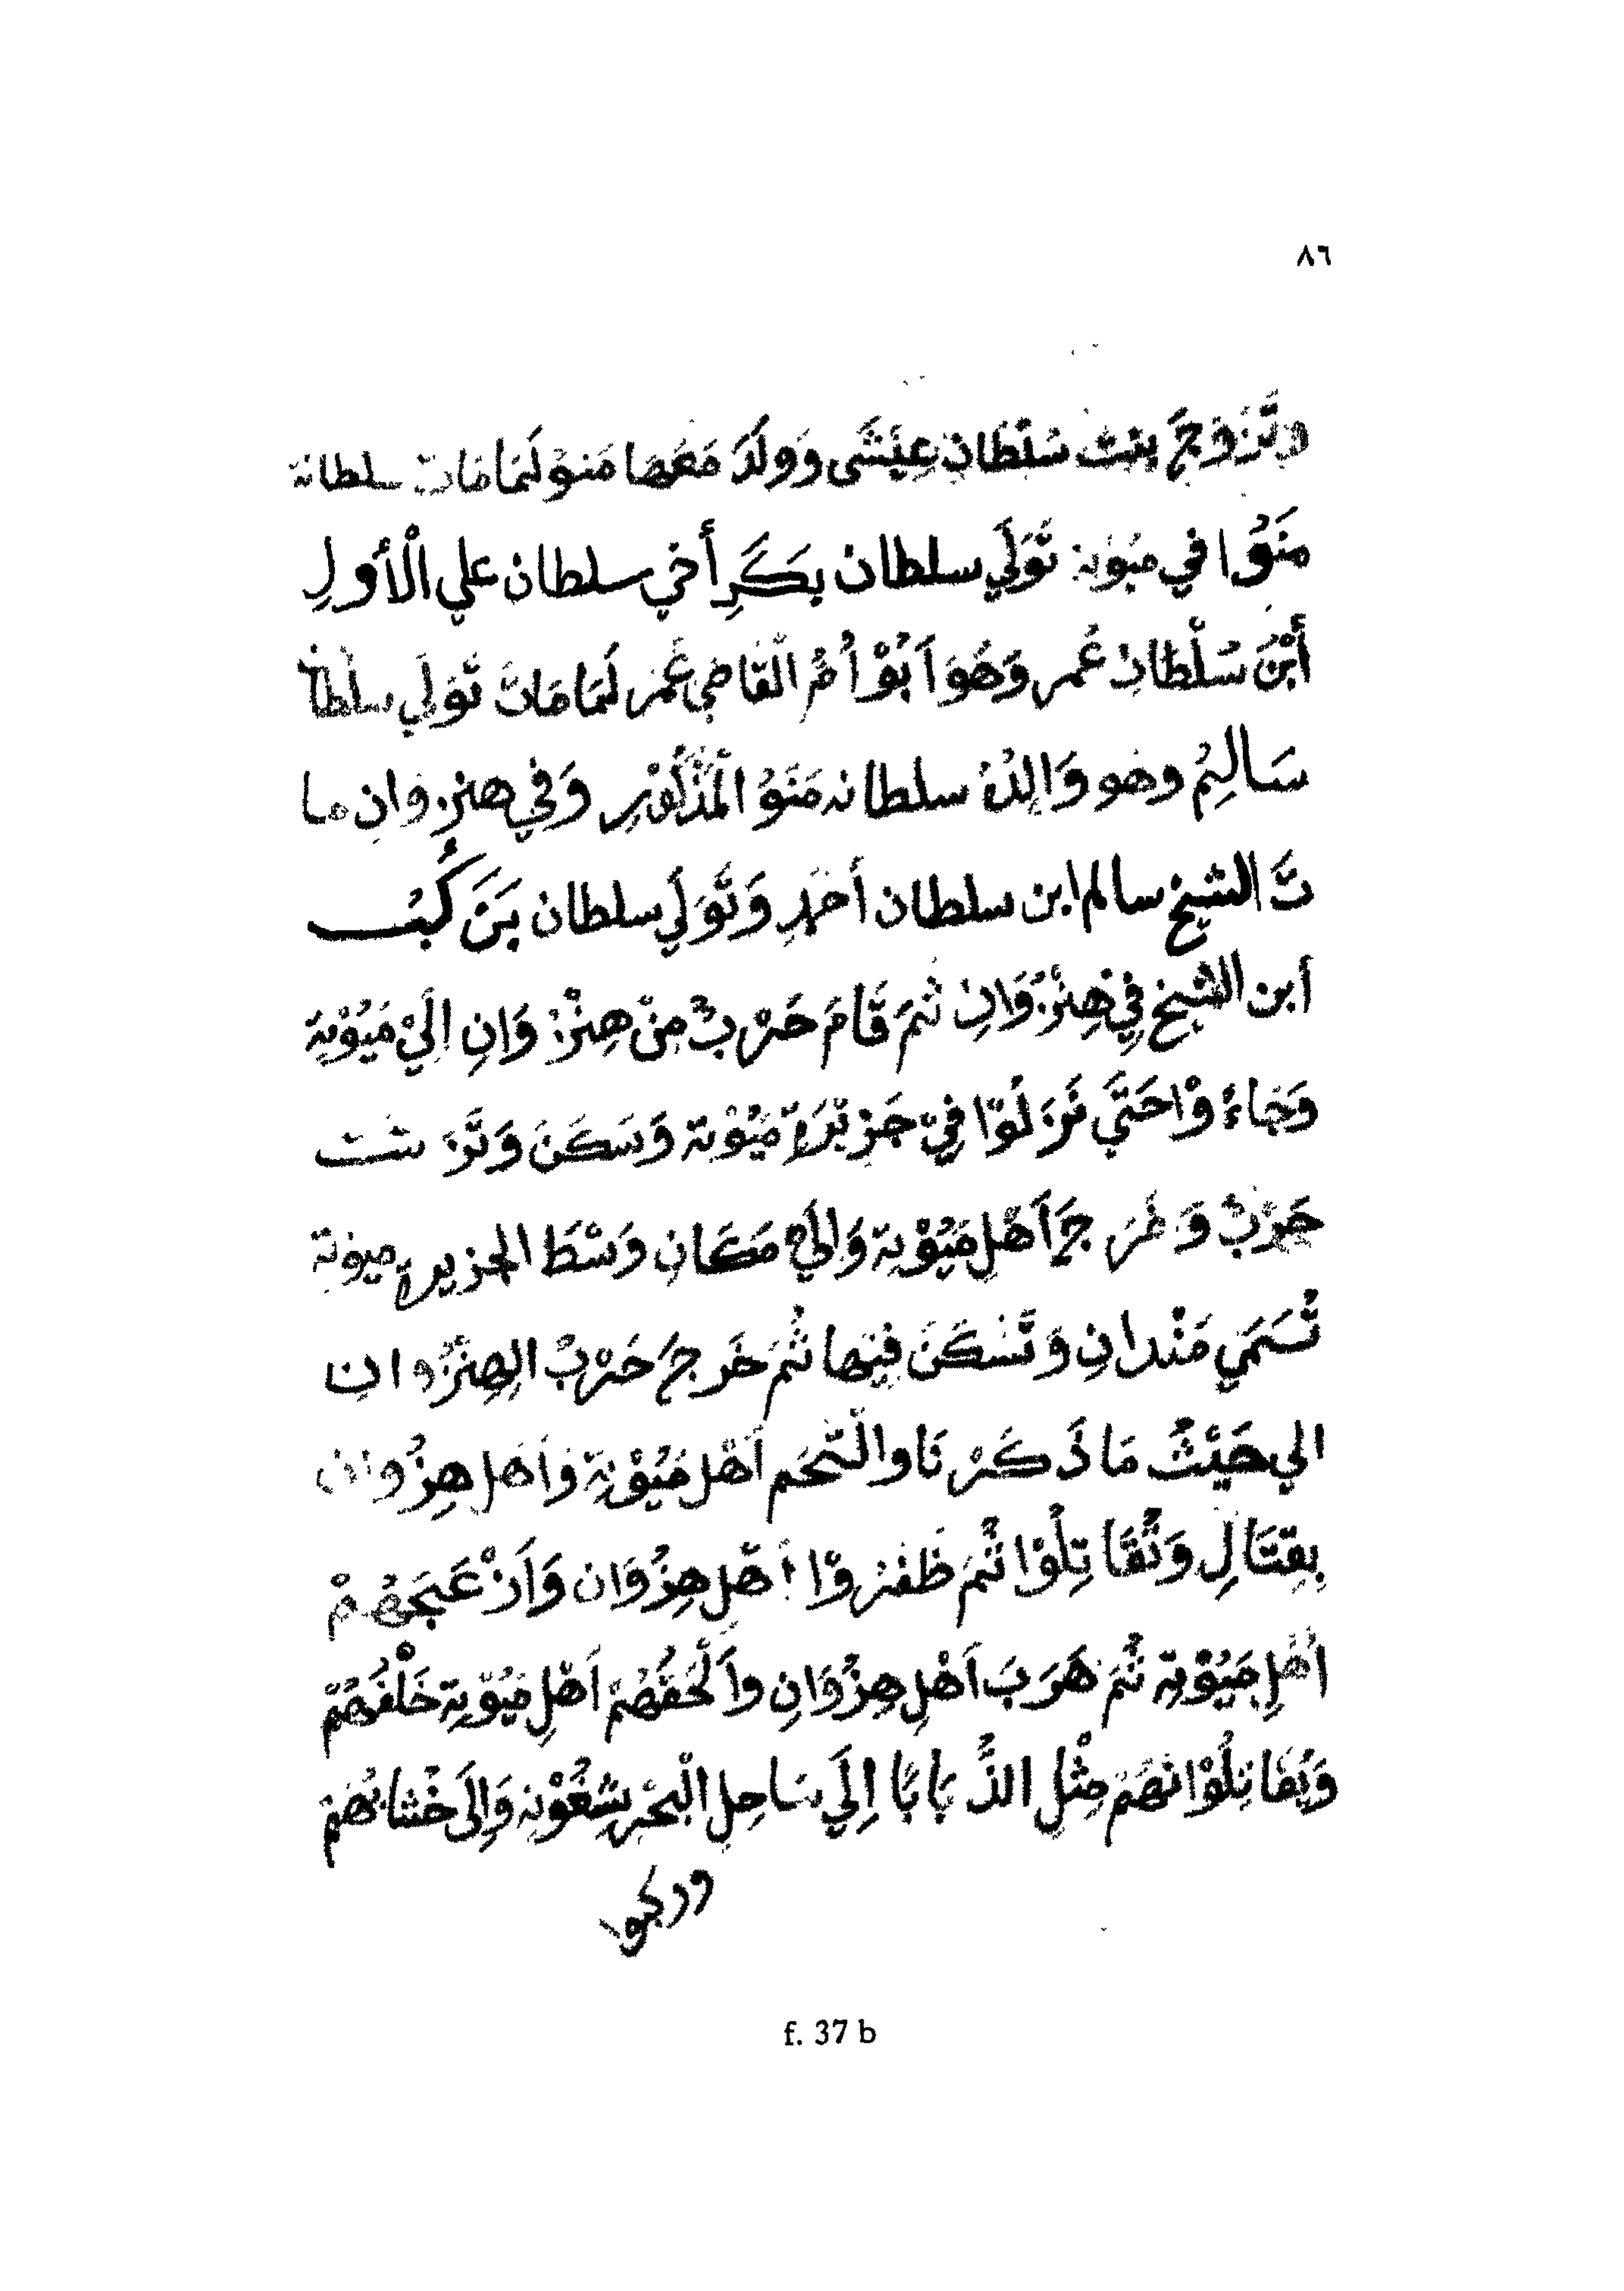 ٨٦
وتَّزَوَجَّ بنت سُلْطَانِ عِيَسَّى وَوَلَدَ مَعَهَا مَنوْ لَمَا مَات سلطانة
مَنَوُا في ميُوْتة تَّوَلَّي سلطان بَكَرِ أخي سلطان علي الْأَولِ
أبْنُ سُلْطَانِ عُمر وَهُوَ اَبُوْ اُمُّ الْقَاضِي عُمَر لَمَا مَاتَ تَّوَلَي سلطان
سَالِمُ وهو وَالِدُ سلطانه مَنَوُ الْمَذْكُوْرِ وَفي هنزوانِ ما
تَّ الشيخ سالم ابن سلطان أحْمَدِ وَتَّوَلَي سلطان بَنَ كُمُب
أبن الشيخ فِي هِنْزُوَانِ ثُمَ قَامَ حَرْبُ مِنْ هِنْزُوَانِ اِلَيْ مَيُوْتِة
وَجَاءُوْا حَتَّي نَزَلُوْا فِيْ جَزِيْرَةِ مَيُوْتة وَسَكَنَ وَنَزَ سَت
حَرْبُ وَخَرَجَ اَهْلِ مَيُوْتة وَاِلَيْ مَكَانِ وَسْطَ الجزيرة ميوتة
تُسَمَي مَنْدَانِ وَتَّسْكَنَ فِيْهَا ثُمَ خَرَجَ حَرْبُ الهِنْزُوانِ
الي حَيْثُ مَا ذَكَرْنَا والْتَّحَم اَهْل مَيُوْتِة وَاَهْل هِزُوان
بِقِتَالِ وَتُّقَاتِلُوْا ثُمَ ظَفَرُوْا أهْلِ هِزُوَان وَاَزْعَجَهُمْ
اهْلِ مَيُوْتِة ثُمَ هَرَبَ اَهْلِ هِزُوَانِ وأَلْحَقَهُمْ اَهْلِ مَيُوْتِة خَلْفَهُمْ
وَتُقَاتِلُوْا نَهَمْ مِثْلِ الذُّبَابَّا اِلَي سَاحِلِ الْبَحْرِ شُغُوْنِ وَاِلَى خْشَابُهُمْ
f. 37 b